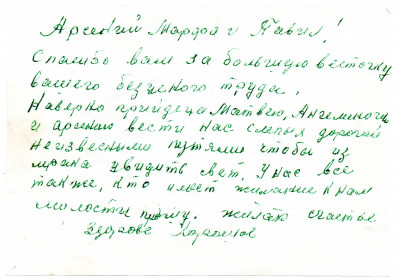 Арсений Мардоа и Павил!
Спасибо вам за большую весточку
вашего безуского труда,
Наверно прийдеца Матвею, Ангемноги
и арсению вести нас слепых дорогой
неизвесными путями чтобы из
мрака увидить свет, У нас все
также, кто имеет жилание к нам
молости прошу. жилаю счастье
здоровє